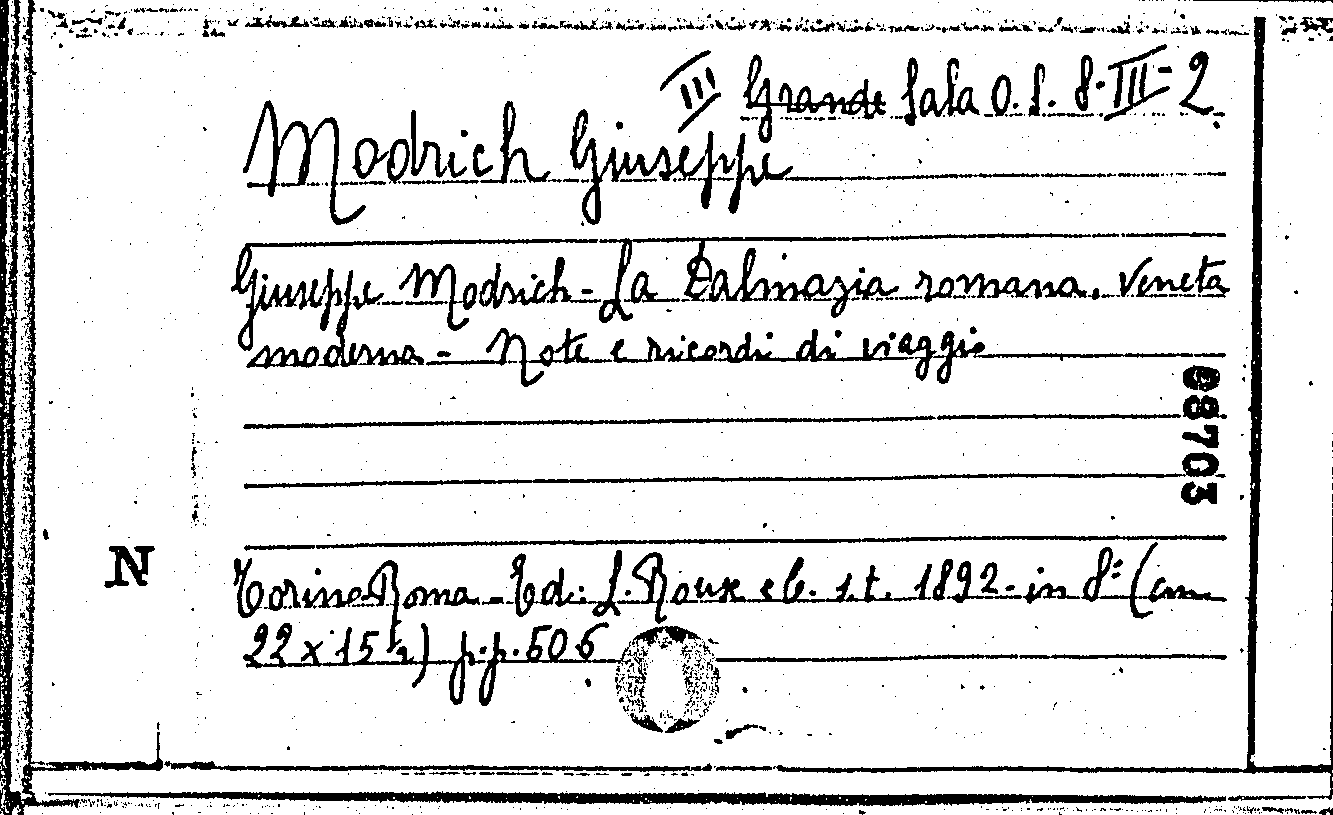 III Grande Sala O. S. 8-III-2
Modrich Giuseppe
Giuseppe Modrich - La Dalmazia romana. Veneta
moderna - Note e ricordi di viaggio
08703
N
Torino-Roma - Ed: L. Roux e C. s.t. 1892 - in 8º (cm
22 x 15 ½) p.p. 506